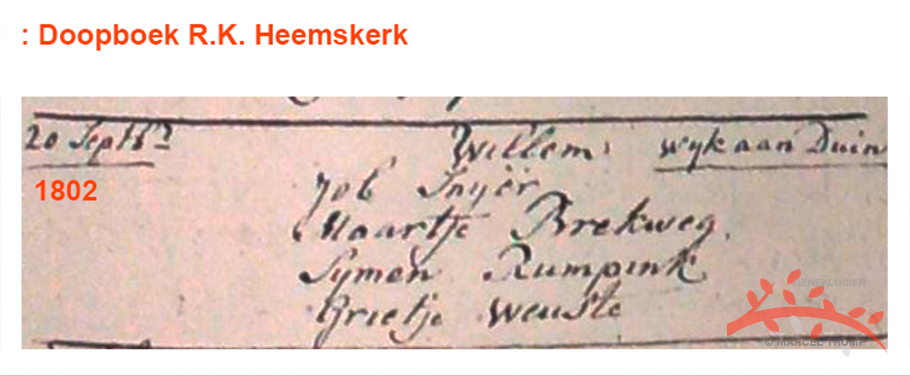 : Doopboek R.K. Heemskerk
20 Septbr Willem wyk aan Duin
1802
Job Snyer
Maartje Brekweg.
Symen Rumpink
Grietje Weuste
GENEALOGIEN
© MARCEL TROMP